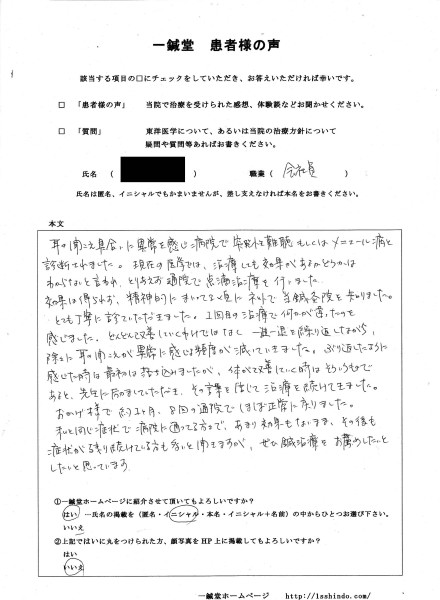 一鍼堂　患者様の声
該当する項目の□にチェックをしていただき、お答えいただければ幸いです。
□　「患者様の声」　当院で治療を受けられた感想、体験談などお聞かせください。
□　「質問」　東洋医学について、あるいは当院の治療方針について
疑問や質問等あればお書きください。
氏名　（　　　）　職業（　会社員　）
氏名は匿名、イニシャルでもかまいませんが、差し支えなければ本名をお書きください。
本文
耳の聞こえ具合いに異常を感じ病院で突発性難聴もしくはメニエール病と
診断されました。現在の医学では、治療しても効果があるかどうかは
わからないと言われ、とりあえず通院で点滴治療を行いました。
効果は得られず、精神的にまいってる頃にネットで当鍼灸院を知りました。
とても丁寧に診ていただきました。1回目の治療で何かが違ったのを
感じました。どんどん改善していくわけではなく一進一退を繰り返しながら、
除々に耳の聞こえが異常に感じる頻度が減っていきました。ぶり返したように
感じた時は最初は落ち込みましたが、体が改善していく時はそういうもので
あると、先生に励ましていただき、その言葉を信じて治療を続けてました。
おかげ様で約2ヶ月、8回の通院でほぼ正常に戻りました。
私と同じ症状で病院に通ってる方々で、あまり効果もないまま、その後も
症状が残り続けている方も多いと聞きますが、ぜひ鍼治療をお薦めしたいと
したいと思っています
①一鍼堂ホームページに紹介させて頂いてもよろしいですか？
はい　―氏名の掲載を（匿名・イニシャル・本名・イニシャル＋名前）の中からひとつお選び下さい。
いいえ
②上記ではいに丸をつけられた方、顔写真をHP上に掲載してもよろしいですか？
はい
いいえ
一鍼堂ホームページ　http://1sshindo.com/